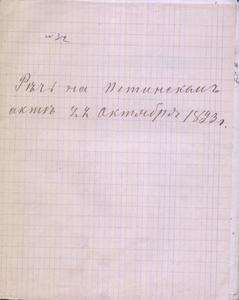 № 32
Рѣчь на Петинскомъ
актѣ 22 октября 1893 г.